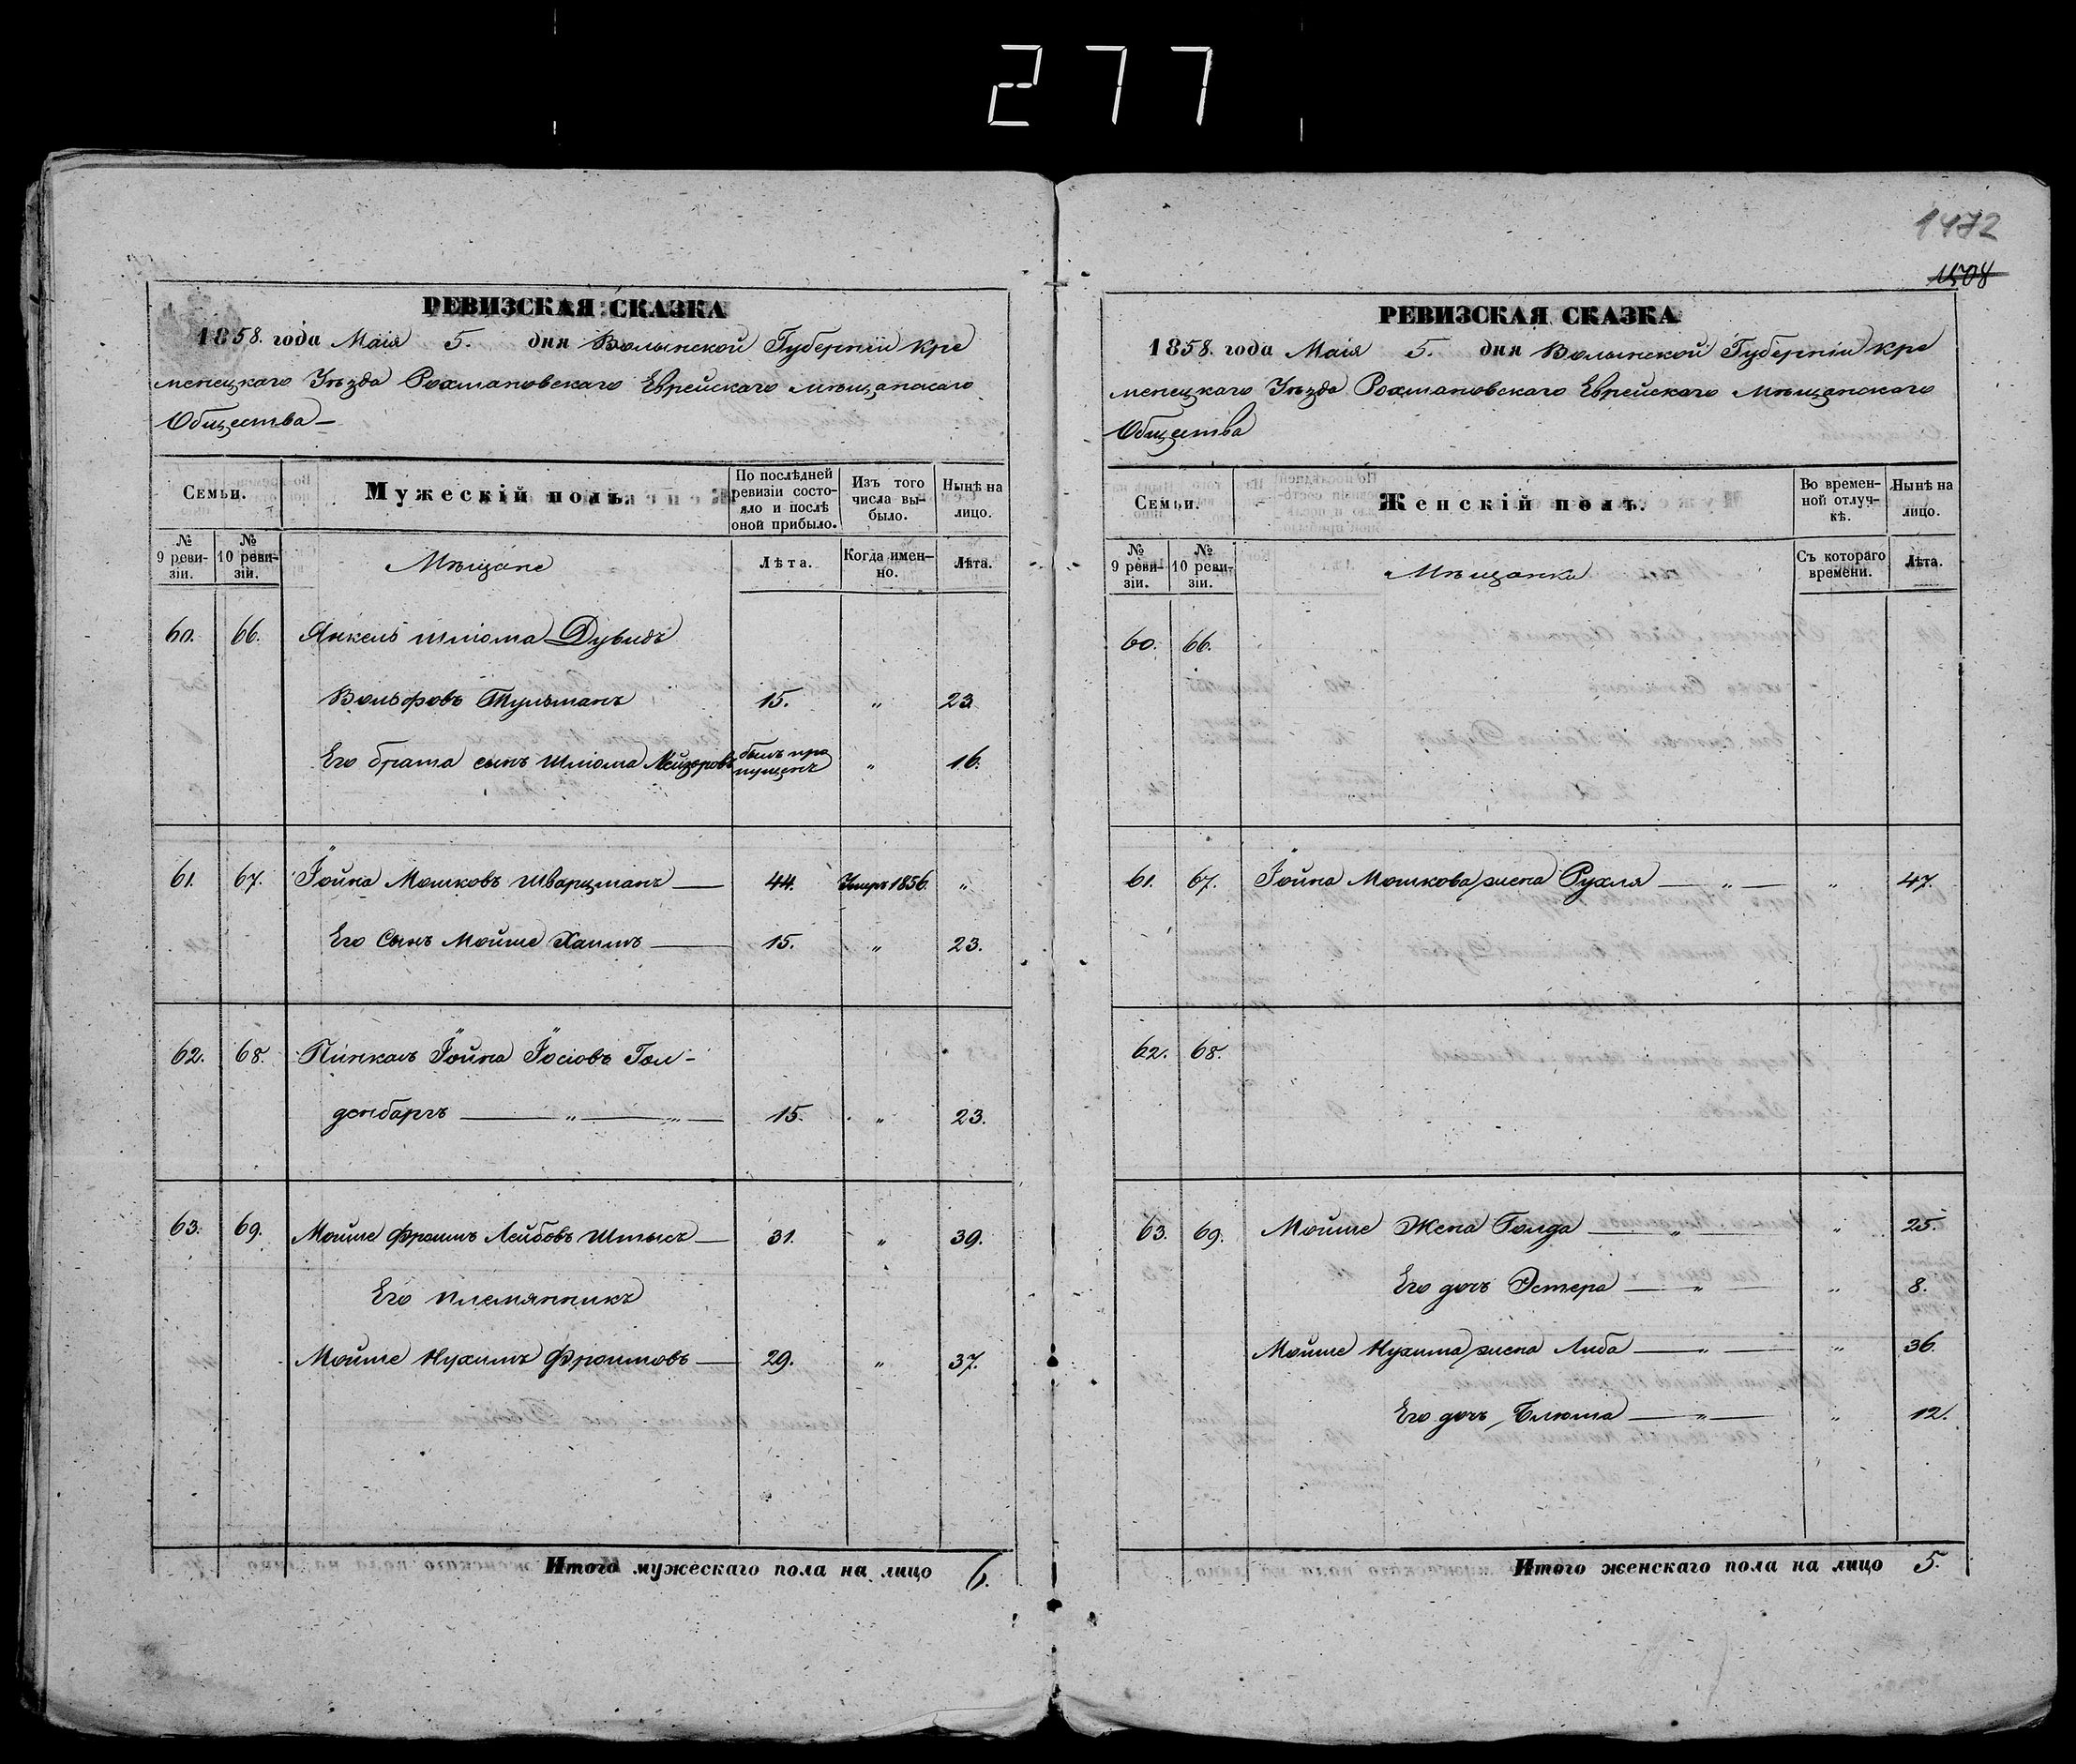 277
1472
1508
РЕВИЗСКАЯ СКАЗКА
1858. года Маія 5. дня Волынской Губерніи Кре
менецкаго Уѣзда Рохмановскаго Еврейскаго мѣщанскаго
Общества —
Семьи.
Мужескій полъ.
По послѣдней ревизіи состояло и послѣ оной прибыло.
Изъ того числа выбыло.
Нынѣ на лицо.
№ 9 ревизіи.
№ 10 ревизіи.
Мѣщане
Лѣта.
Когда именно.
Лѣта.
60. 66. Янкель Шліома Дувидъ
Вольфовъ Тульманъ 15. „ 23
Его брата сынъ Шліома Лейзоровъ былъ пропущенъ „ 16.
61. 67. Іойна Мошковъ Шварцманъ — 44. Умеръ 1856. „
Его Сынъ Мойше Хаимъ — 15. „ 23.
62. 68. Пинкась Іойна Іосіовъ Гол-
денбаргъ — „ — „ — 15. „ 23.
63. 69. Мойше Фроимъ Лейбовъ Штысъ — 31. „ 39.
Его племянникъ
Мойше Нухимъ Фроимовъ — 29. „ 37.
Итого мужескаго пола на лицо 6.
РЕВИЗСКАЯ СКАЗКА
1858. года Маія 5. дня Волынской Губерніи Кре
менецкаго Уѣзда Рохмановскаго Еврейскаго Мѣщанскаго
Общества
Семьи.
Женскій полъ.
Во временной отлучкѣ.
Нынѣ на лицо.
№ 9 ревизіи.
№ 10 ревизіи.
Мѣщанки
Съ котораго времени.
Лѣта.
60. 66.
61. 67. Іойна Мошкова жена Рухля — „ — „ 47.
62. 68.
63. 69. Мойше Жена Голда — „ — „ 25.
Его дочь Эстера — „ — „ 8.
Мойше Нухима жена Либа — „ — „ 36.
Его дочь Блюма — „ — „ 12.
Итого женскаго пола на лицо 5.